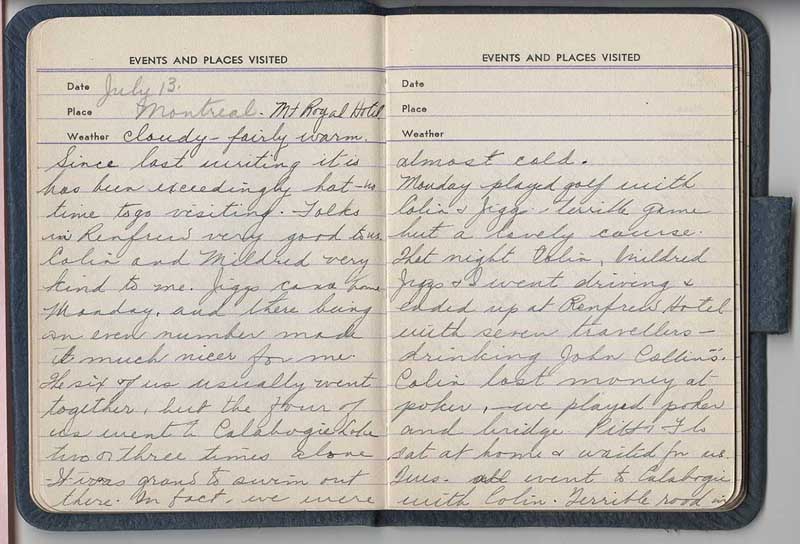 EVENTS AND PLACES VISITED
Date July 13.
Place Montreal. Mt Royal Hotel
Weather Cloudy - fairly warm.
Since last writing it is
has been exceedingly hot - no
time to go visiting. Folks
in Renfrew very good to us.
Colin and Mildred very
kind to me. Jiggs came home
Monday, and there being
an even number made
it much nicer for me.
The six of us usually went
together, but the four of
us went to Calabogie Lake
two or three times alone
- It was grand to swim out
there. In fact, we were
EVENTS AND PLACES VISITED
Date
Place
Weather
almost cold.
Monday played golf with
Colin & Jiggs. terrible game
but a lovely course.
That night Colin, Mildred
Jiggs & I went driving &
ended up at Renfrew Hotel
with seven travellers -
drinking John Collins'.
Colin lost money at
poker, - we played poker
and bridge. & Flo
sat at home & waited for us.
Tues. all went to Calabogie
with Colin. Terrible road in